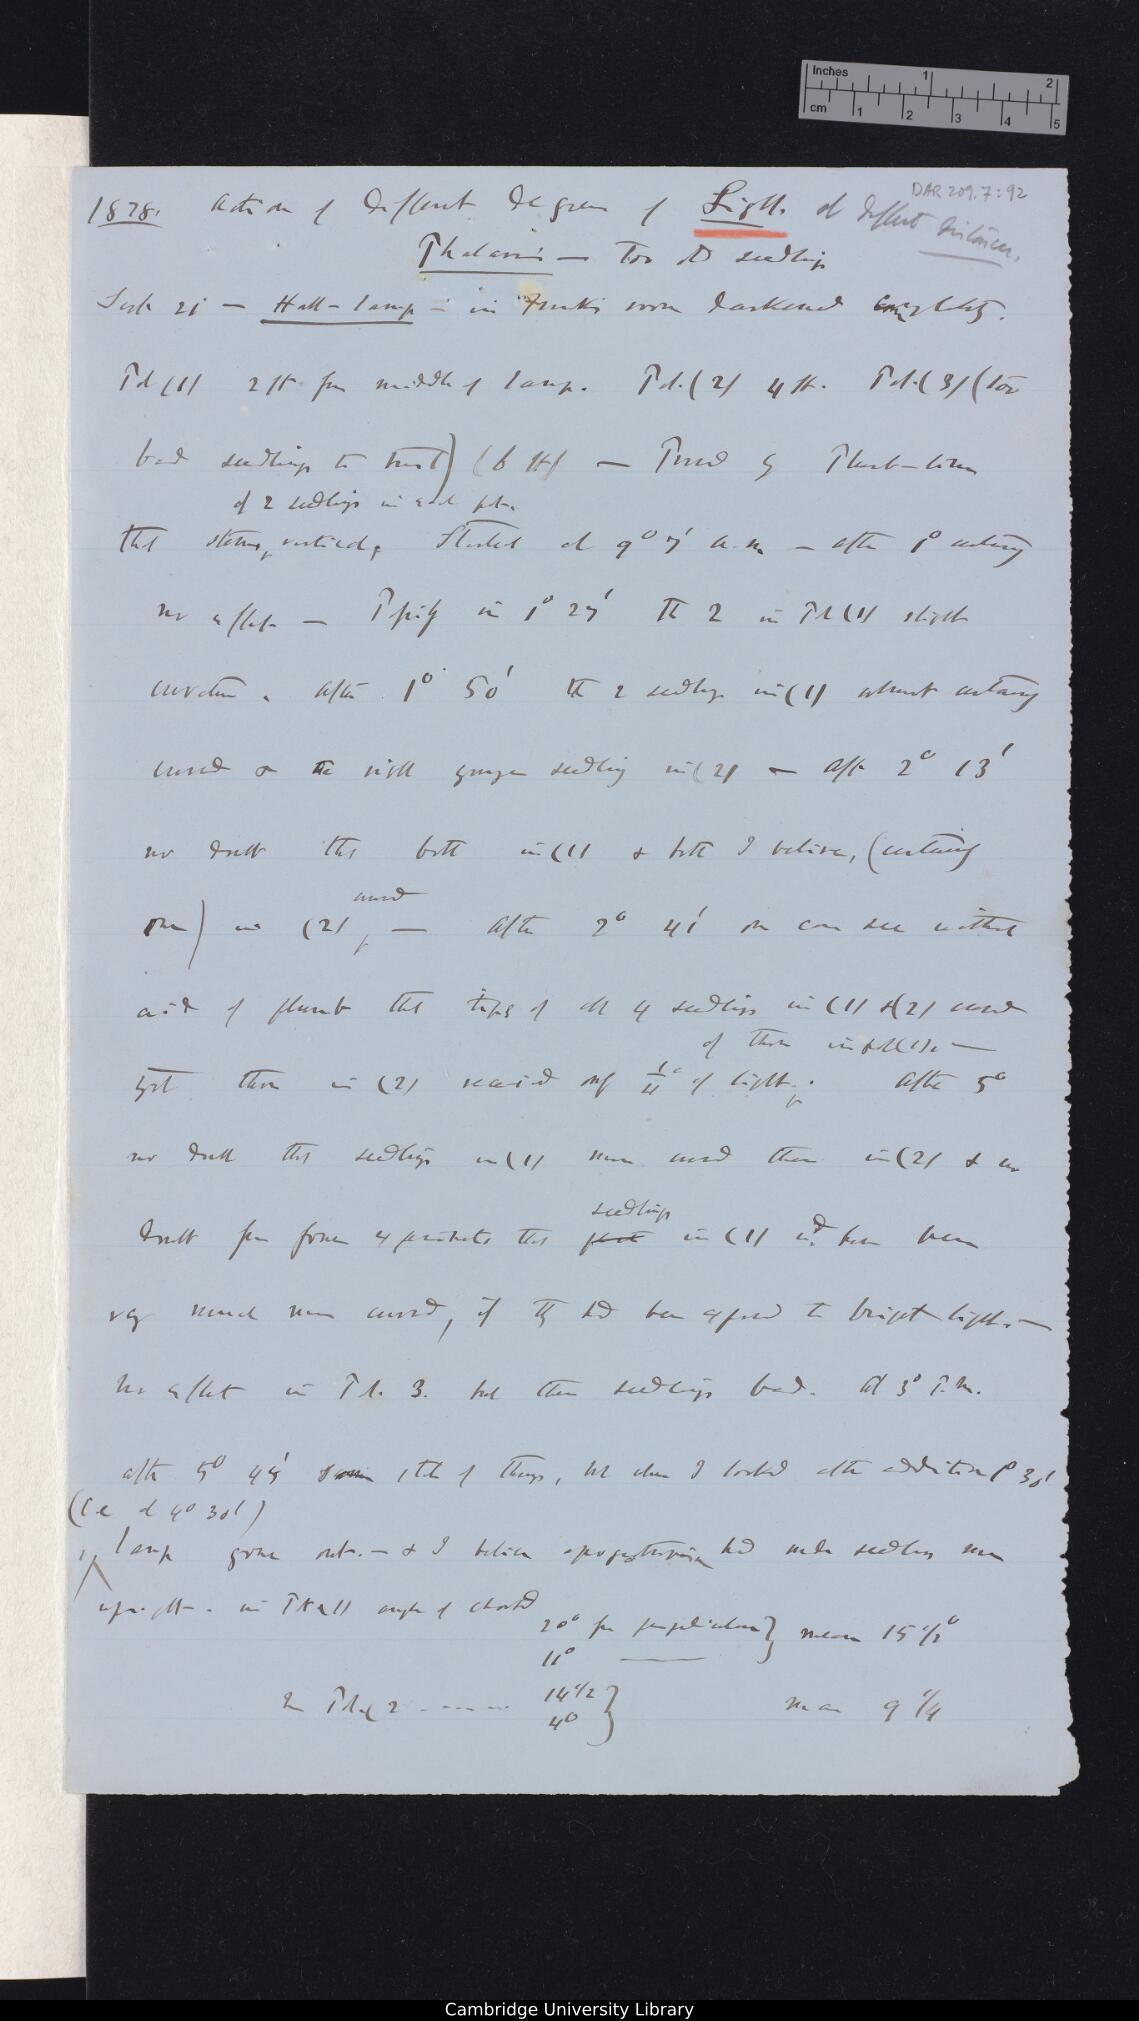 DAR 209.7:92
1878. Action of different degrees of Light. at different distances.
Phalaris — Too old seedlings
Sept 21 — Hall-lamp — in room darkened completely.
Pot (1) 2 ft from middle of lamp. Pot. (2) 4 ft. Pot. (3) (too
bad seedlings to trust) (6 ft) — Proved by Plumb-line
of 2 seedlings in each pot.
that stems, vertical, Started at 9° 7' a.m — after 1° certainly
no effect — in 1° 27' the 2 in Pot (1) slight
curvature. After 1° 50' the 2 seedlings in (1) almost certainly
curved & the younger seedling in (2) — After 2° 13'
no doubt that both in (1) & both I believe, (certainly
curved
one) in (2), — After 2° 41' one can see without
aid of plumb that tips of all 4 seedlings in (1) & (2) curved
of those in pot (1). —
yet those in (2) received only 1/4 of light. After 5°
no doubt that seedlings in (1) more curved than in (2) & no
seedlings
doubt from former experiments that in (1) wd. have been
very much more curved, if they had been exposed to bright light. —
No effect in Pot. 3. but these seedlings bad. At 3° P.m.
after 5° 45' same state of things, but when I looked after additional 1° 30'
(i.e at 4° 30')
lamp gone out. — & I believe apogeotropism had made seedlings more
upright. in Pot (1) angle of chord
20° from perpendicular } mean 15 1/2°
11° ———
In Pot (2 ------ 14 1/2
4° } mean 9 1/4
inches 1 2
cm 1 2 3 4 5
Cambridge University Library